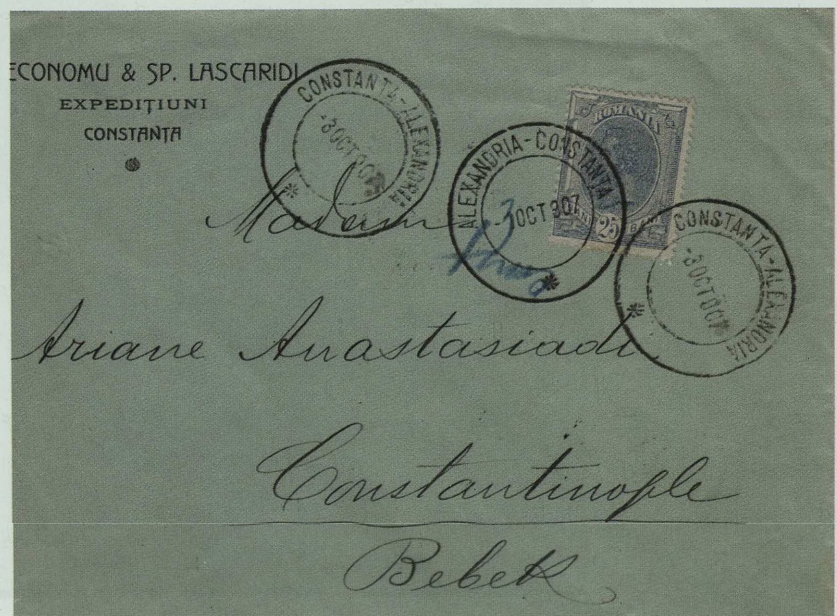 ECONOMU & SP. LASCARIDI
EXPEDIȚIUNI
CONSTANȚA
CONSTANTA-ALEXANDRIA
-3 OCT 907
ALEXANDRIA-CONSTANTA
-3 OCT 907
ROMANIA
25
BANI
CONSTANTA-ALEXANDRIA
-3 OCT 907
Madam
Ariane Anastasiadi
Constantinople
Bebek